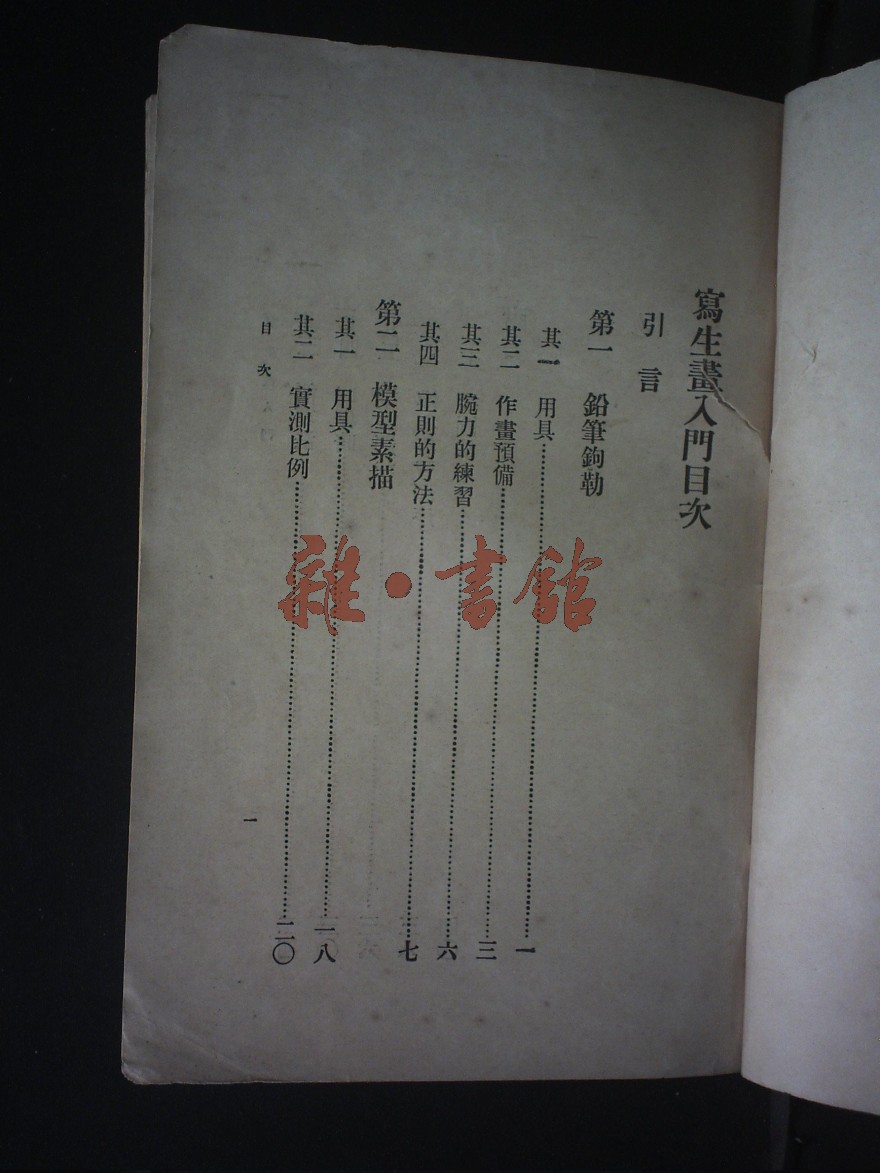 寫生畫入門目次
引言
第一 鉛筆鉤勒
其一 用具……一
其二 作畫預備……三
其三 腕力的練習……六
其四 正則的方法……七
第二 模型素描
其一 用具……一八
其二 實測比例……二〇
目次
一
雜·書館